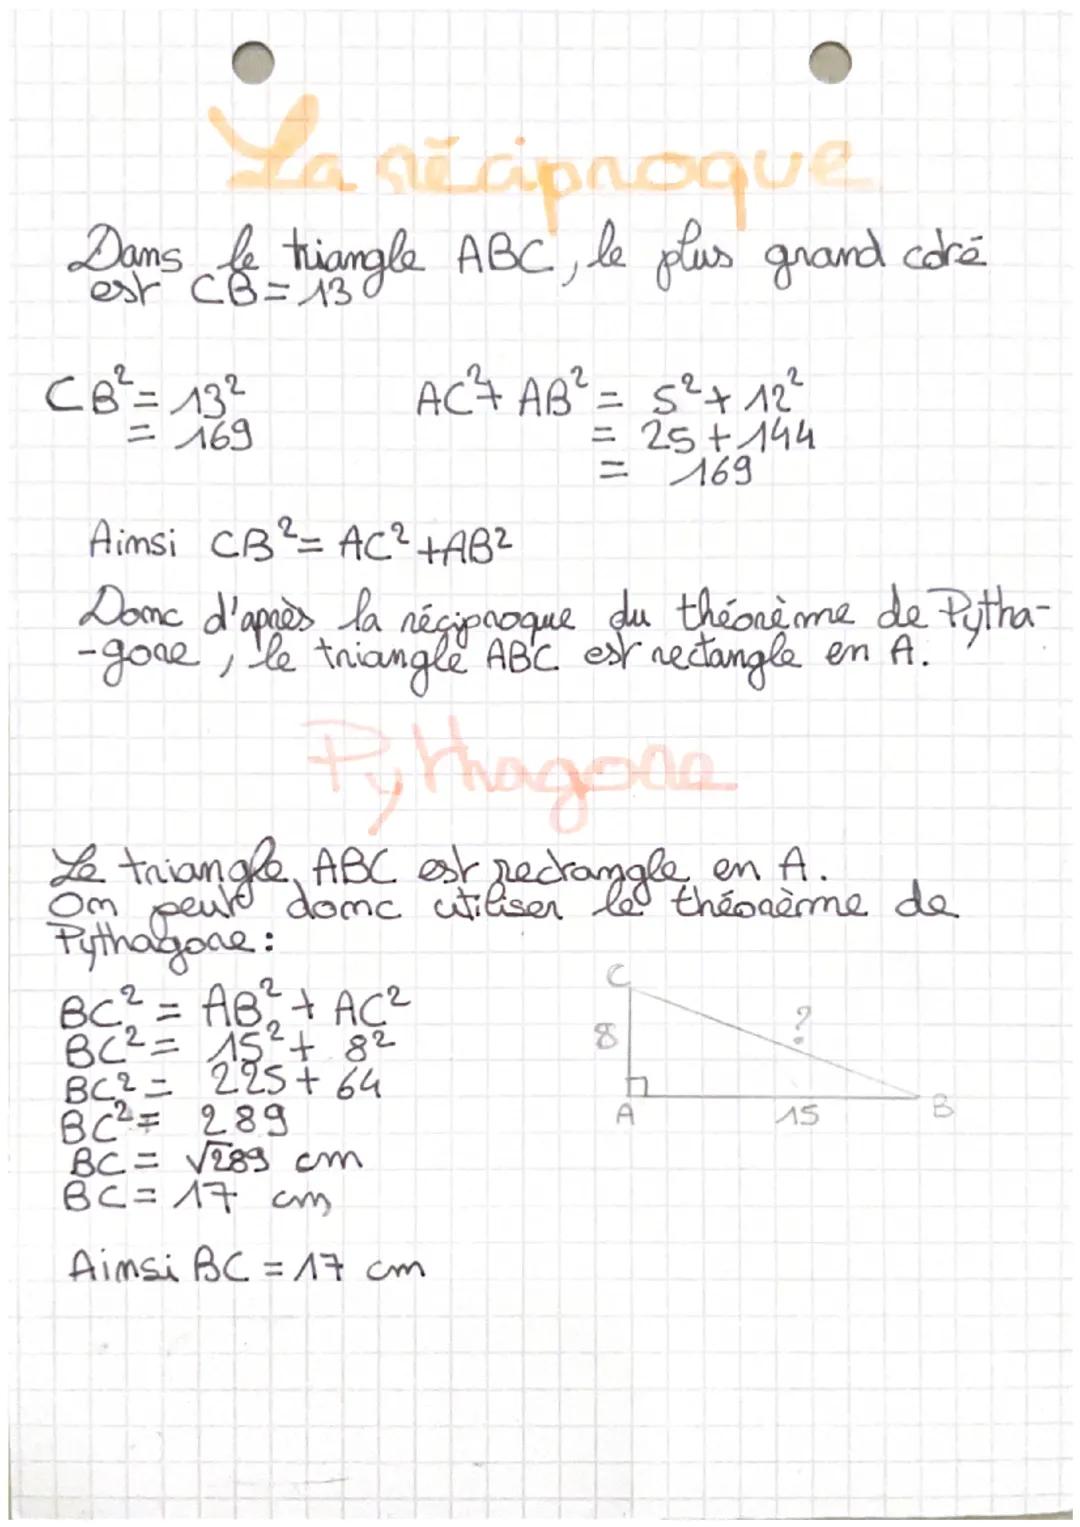 La réciproque
Dans le triangle ABC, le plus grand coté
est CB = 13
CB² = 13²
= 169
AC² + AB² = 5² + 12²
= 25 + 144
= 169
Ainsi CB² = AC² + AB²
Donc d'après la réciproque du théorème de Pytha-
-gore, le triangle ABC est rectangle en A.
Pythagore
Le triangle ABC est rectangle en A.
On peut donc utiliser le théorème de
Pythagore :
BC² = AB² + AC²
BC² = 15² + 8²
BC² = 225 + 64
BC² = 289
BC = √289 cm
BC = 17 cm
Ainsi BC = 17 cm
C
8
?
A
15
B